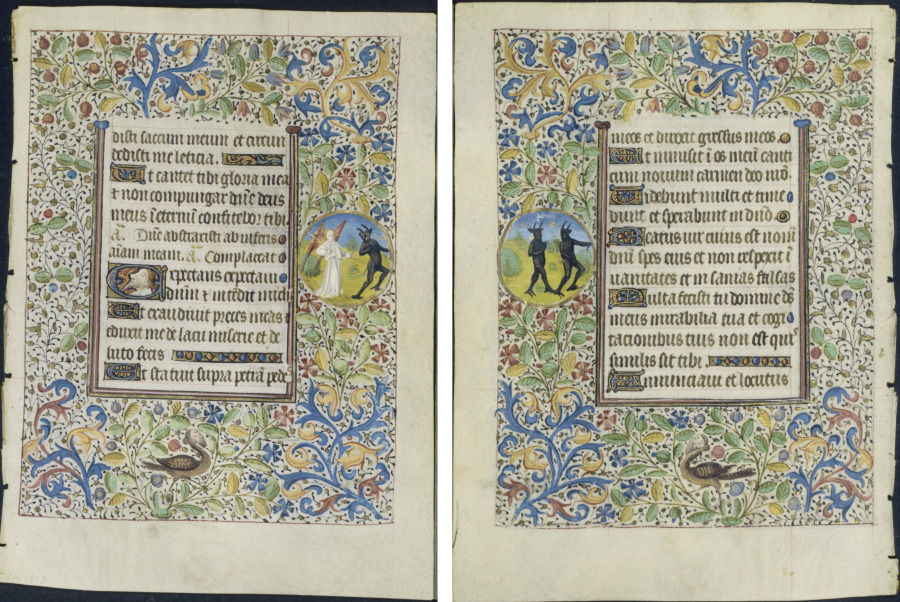 disti saccum meum et circum
dedisti me leticia.
Ut cantet tibi gloria mea
et non compungar dn̄e deus
meus ī eternū confitebor tibi
añ. Dn̄e abstraxisti ab inferis
aīam meam. añ. Complaceat
Expectans expectaui
dn̄m et intēdit michi
Et exaudiuit preces meas
eduxit me de lacu miserie et de
luto fecis
Et statuit supra petrā pede
meos et direxit gressus meos
Et inmisit ī os meū canti
cum nouum carmen deo nrō
Uidebunt multi et time
bunt et sperabunt in dn̄o
Beatus uir cuius est nomē
dn̄i spes eius et non respexit ī
uanitates et insanias falsas
Multa fecisti tu domine ds̄
meus mirabilia tua et cogi
tacionibus tuis non est qui
similis sit tibi
Annunciaui et locutus